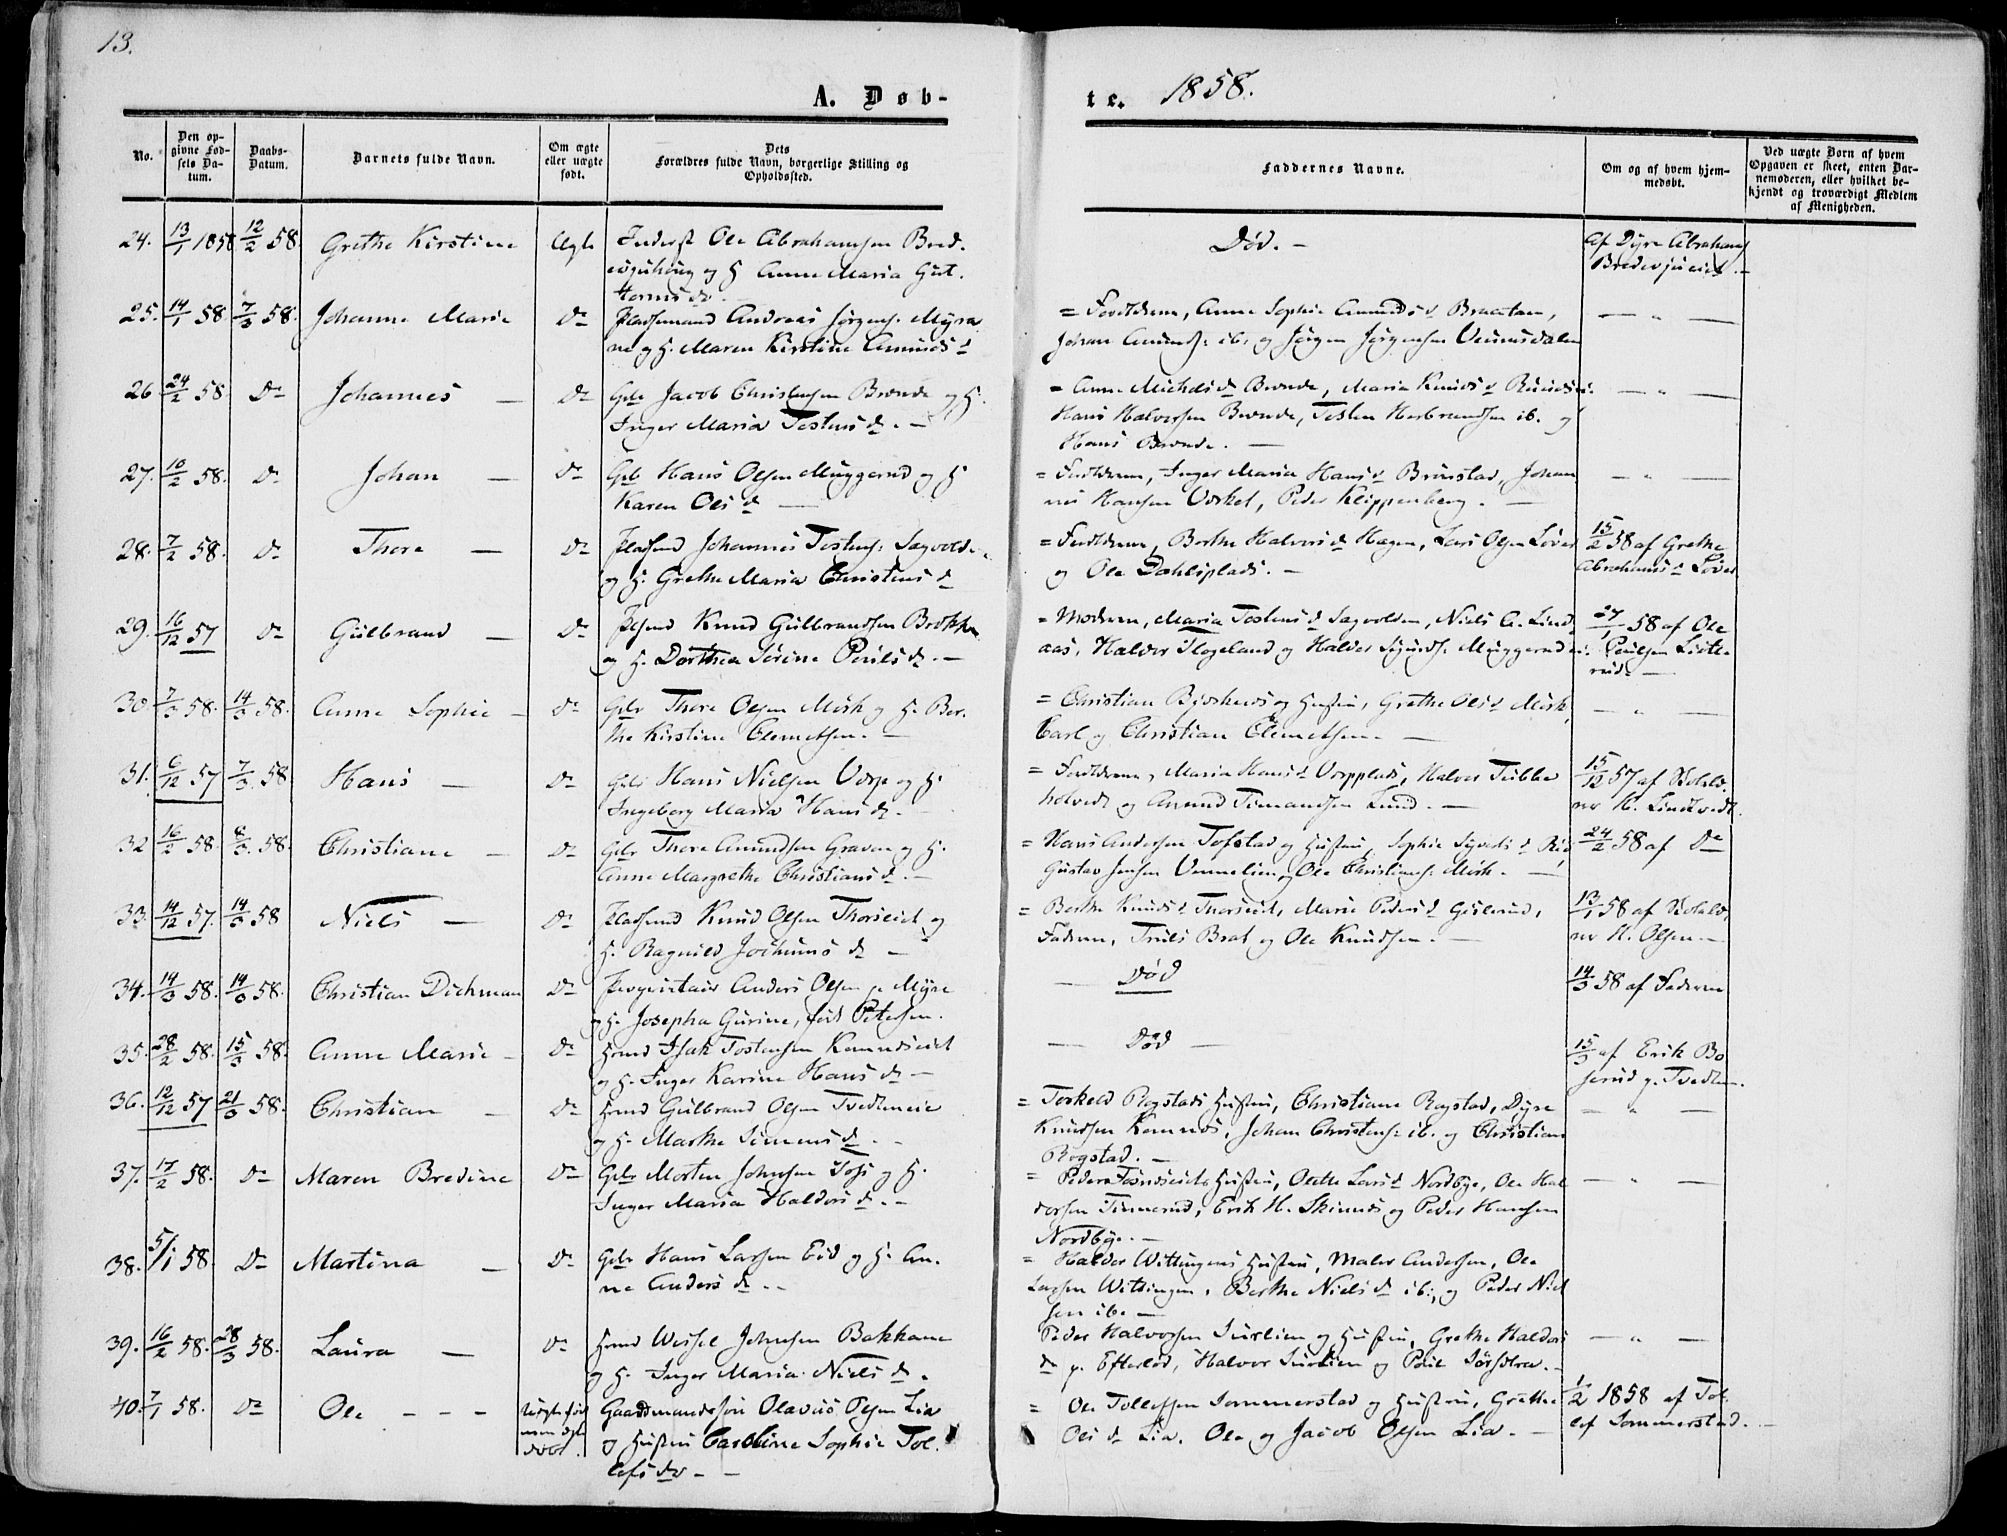 13.
A. Døb-
te. 1858.
No.
Den op-
givne Fød-
sels Da-
tum.
Daabs-
Datum.
Barnets fulde Navn.
Om ægte
eller uægte
født.
Dets
Forældres fulde Navn, borgerlige Stilling og
Opholdssted.
Faddernes Navne.
Om og af hvem hjem-
medøbt.
Ved uægte Børn af hvem
Opgaven er skeet, enten Bar-
nemoderen, eller hvilket be-
kjendt og troværdigt Medlem
af Menigheden.
24. 13/1 1858 12/2 58. Grethe Kirstine Ægte Inderst Ole Abrahamsen
og H Anne Maria Gut-
torms dr. Død. - Af Dyre Abrahams
25. 14/1 58 7/3 58. Johanne Marie do Pladsemand Andreas Jørgens. Myra
ne og H. Maren Kirstine Amunds d
= Forældrene, Anne Sophie Amunds d Braatan,
Johan Amunds: ib. og Jørgen Jørgensen
26 24/2 58 do Johannes - do Gbr Jacob Christensen Brønde og H.
Inger Maria Tostens d. -
= Anne Michels d Brønde, Maria Knuds d
Hans Halvorsen Brønde, Tosten Herbrandsen ib. og
Hans Brønde. -
27. 10/2 58. do Johan - do Gbr Hans Olsen Muggerud og H
Karen Ols d -
= Forældrene, Inger Maria Hans d Brunstad, Johan
nes Hansen Værket, Peder Klippenberg. -
28. 7/2 58. do Thore - do Pladsmd Johannes Tostens: Sagvolden
og H. Grethe Maria Christens d
= Forældrene, Berthe Halvors d Hagen, Lars Olsen Løver
og Ole Dahlsplads. -
15/2 58 af Grethe
Abrahams d Løver
29. 16/12 57 do Gulbrand - do Plsmd Knud Gulbrandsen Brekke
og H. Dorthea Sørine Pouls d. -
= Moderen, Maria Tostens d Sagvolden, Niels A. Lind-
aas, Halvor Skogeland og Halvor Muggerudei.
27/1 58 af Ole
Poulsen
30 7/3 58. 14/3 58. Anne Sophie - do Gbr Thore Olsen Mørk og H. Ber-
the Kirstine Clemetsen. -
= Christian og Hustru, Grethe Ols d Mørk,
Carl og Christian Clemetsen. -
31. 6/12 57 7/3 58 Hans - do Gbr Hans Nielsen Vorp og H
Ingeborg Maria Hans d. -
= Forældrene, Maria Hans d Vorpplads, Halvor Tubbe
holvedt og Amund Simandsen Lund. -
15/12 57 af
H. Lindtvedt
32 16/2 58. 8/3 58. Christiane - do Gbr Thore Amundsen Graven og H.
Anne Margrethe Christians d. -
= Hans Andersen Tofstad og Hustru, Sophie Syverts d
Gustav Jensen Vennelien, Ole Christians: Mørk. -
24/2 58 af do
33. 14/12 57. 14/3 58 Niels - do Pladsmd Knud Olsen Thorseiet og
H. Ragnild Jochums d -
= Berthe Knuds d Thorseiet, Marie Peders d
Faderen, Truls Brat og Ole Knudsen. -
13/1 58 af
H. Olsen. -
34. 14/3 58. 14/3 58. Christian Dichman do Proprietair Anders Olsen p. Myre
og H. Josepha Gurine, født Petersen.
- Død
14/3 58 af Faderen
35. 28/2 58. 15/3 58. Anne Marie - do Hmd Isak Tostensen
og H. Inger Karine Hans d -
- Død -
15/3 af Erik Bo
serud p. Tvedten.
36. 12/12 57 21/3 58. Christian - do Hmd Gulbrand Olsen Tvedteneie
og H. Marthe Simens d. -
= Torkeld Rogstads Hustru, Christiane Rogstad, Dyre
Knudsen Komnæs, Johan Christens: ib. og Christian
Rogstad. -
37. 17/2 58. do Maren Bredine do Gbr Morten Johnsen og H.
Inger Maria Haldors d. -
= Hustru, Lars d Nordbye, Ole Hal
dorsen Tinnerud, Erik H. og Peder Hansen
Nordbye. -
38. 5/1 58. do Martina - do Gbr Hans Larsen Eid og H. An-
ne Anders d. -
= Haldor Wittingens Hustru, Andersen, Ole
Larsen Wittingen, Berthe Niels d ib., og Peder Niel
sen ib. -
39. 16/2 58. 28/3 58. Laura - do Hmd Wessel Johnsen Bakkane
og H. Inger Maria Niels d.
Peder Halvorsen Surlien og Hustru, Grethe Haldors
d p. Efteløt, Halvor Surlien og
40. 7/1 58. do Ole - - - Gaardmandssøn Olavus Olsen Lia
og Hustru Caroline Sophie Tol-
lefs dr. -
= Ole Tollefsen Sommerstad og Hustru, Grethe
Ols d Lia, Ole og Jacob Olsen Lia. -
1/2 1858 af Tol-
lef Sommerstad.